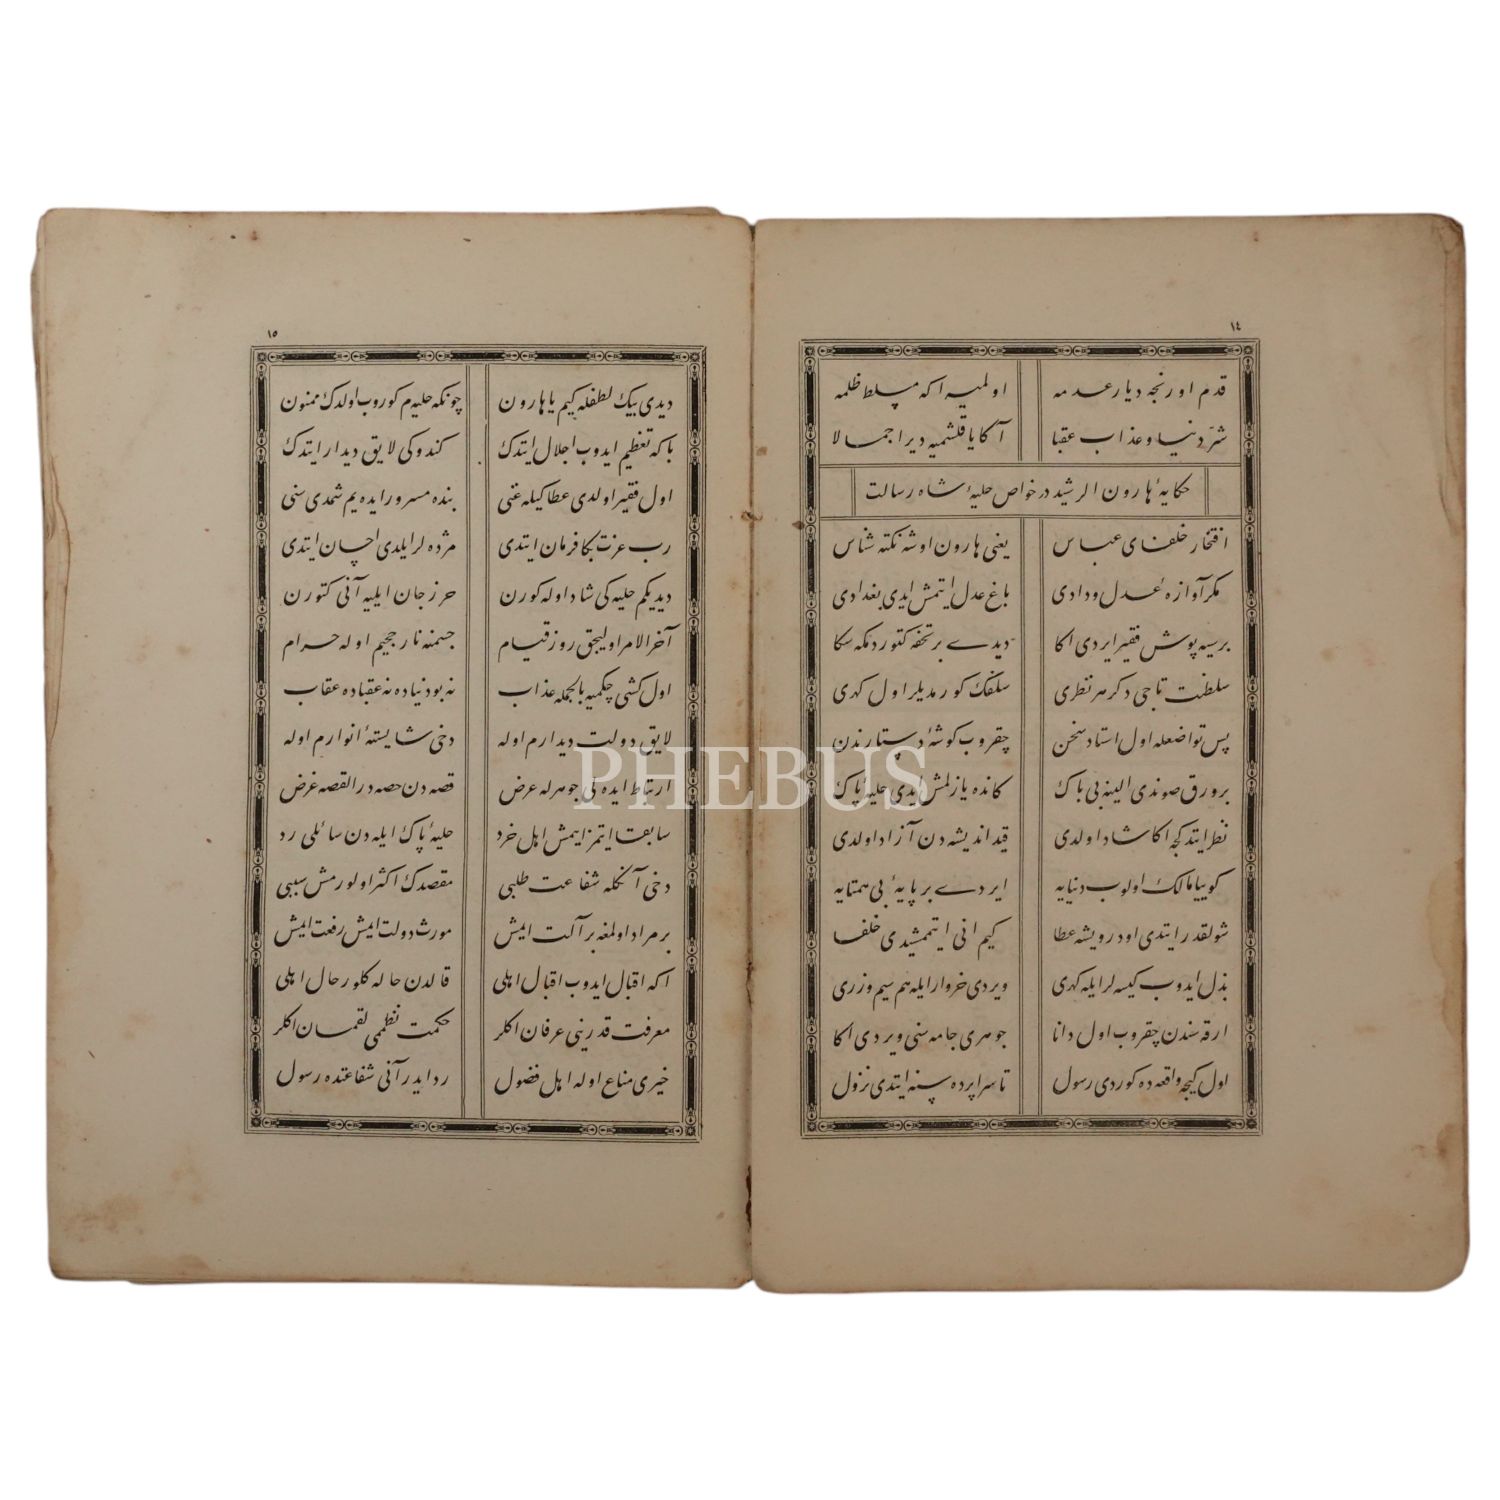 ١٤
قدم اورنجه ديار عدمه اولميه اكه مسلط ظلمه
شر دنيا و عذاب عقبا آكا ياقلشميه دير اجمالا
حكايهٔ هارون الرشيد در خواص حليهٔ شاه رسالت
افتخار خلفاى عباس يعنى هارون اوشه نكته شناس
مكر آوازهٔ عدل و دادى باغ عدل ايتمش ايدى بغدادى
بر سيه پوش فقير ايردى اكا ديدى بر تحفه كتوردمكه سكا
سلطنت تاجى دكر هر نظرى سلفك كورمديلر اول كهرى
پس تواضعله اول استاد سخن چقروب كوشهٔ دستارندن
بر ورق صوندى الينه بى باك كانده يازلمش ايدى حليهٔ پاك
نظر ايتدكجه اكا شاد اولدى قيد انديشه دن آزاد اولدى
كوييا مالك اولوب دنيايه ايردى بر پايهٔ بى همتايه
شولقدر ايتدى او درويشه عطا كيم انى ايتمشيدى خلفا
بذل ايدوب كيسه لر ايله كهرى ويردى خروار ايله هم سيم و زرى
ارقه سندن چقروب اول دانا جوهرى جامه سنى ويردى اكا
اول كيجه واقعه ده كوردى رسول تا سراپرده سنه ايتدى نزول
١٥
ديدى بيك لطفله كيم يا هارون چونكه حليه م كوروب اولدك ممنون
باكه تعظيم ايدوب اجلال ايتدك كندوكى لايق ديدار ايتدك
اول فقير اولدى عطاكيله غنى بنده مسرور ايده يم شمدى سنى
رب عزت بكا فرمان ايتدى مژده لر ايلدى احسان ايتدى
ديديكم حليه كى شاد اوله كورن حرز جان ايليه آنى كتورن
آخر الامر اوليجق روز قيام جسمنه نار جحيم اوله حرام
اول كشى چكميه بالجمله عذاب نه بو دنياده نه عقباده عقاب
لايق دولت ديدارم اوله دخى شايستهٔ انوارم اوله
ارتباط ايده لى جوهرله عرض قصه دن حصه در القصه غرض
سابقت ايتمز ايمش اهل خرد حليهٔ پاك ايله دن سائلى رد
دخى آنكله شفاعت طلبى مقصدك اكثر اولورمش سببى
بر مراد اولمغه بر آلت ايمش مورث دولت ايمش رفعت ايمش
اكه اقبال ايدوب اقبال اهلى قالدن حاله كلور حال اهلى
معرفت قدرينى عرفان اكلر حكمت نظمى لقمان اكلر
خيرى مناع اوله اهل فضول رد ايدر آنى شفاعتده رسول
PHEBUS